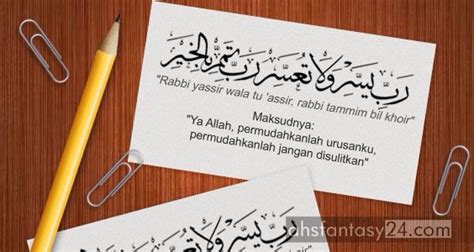 رَبِّ يَسِّرْ وَلَا تُعَسِّرْ رَبِّ تَمِّمْ بِالْخَيْرِ
"Rabbi yassir wala tu 'assir, rabbi tammim bil khoir"
Maksudnya:
"Ya Allah, permudahkanlah urusanku,
permudahkanlah jangan disulitkan"
ahsfantasy24.com